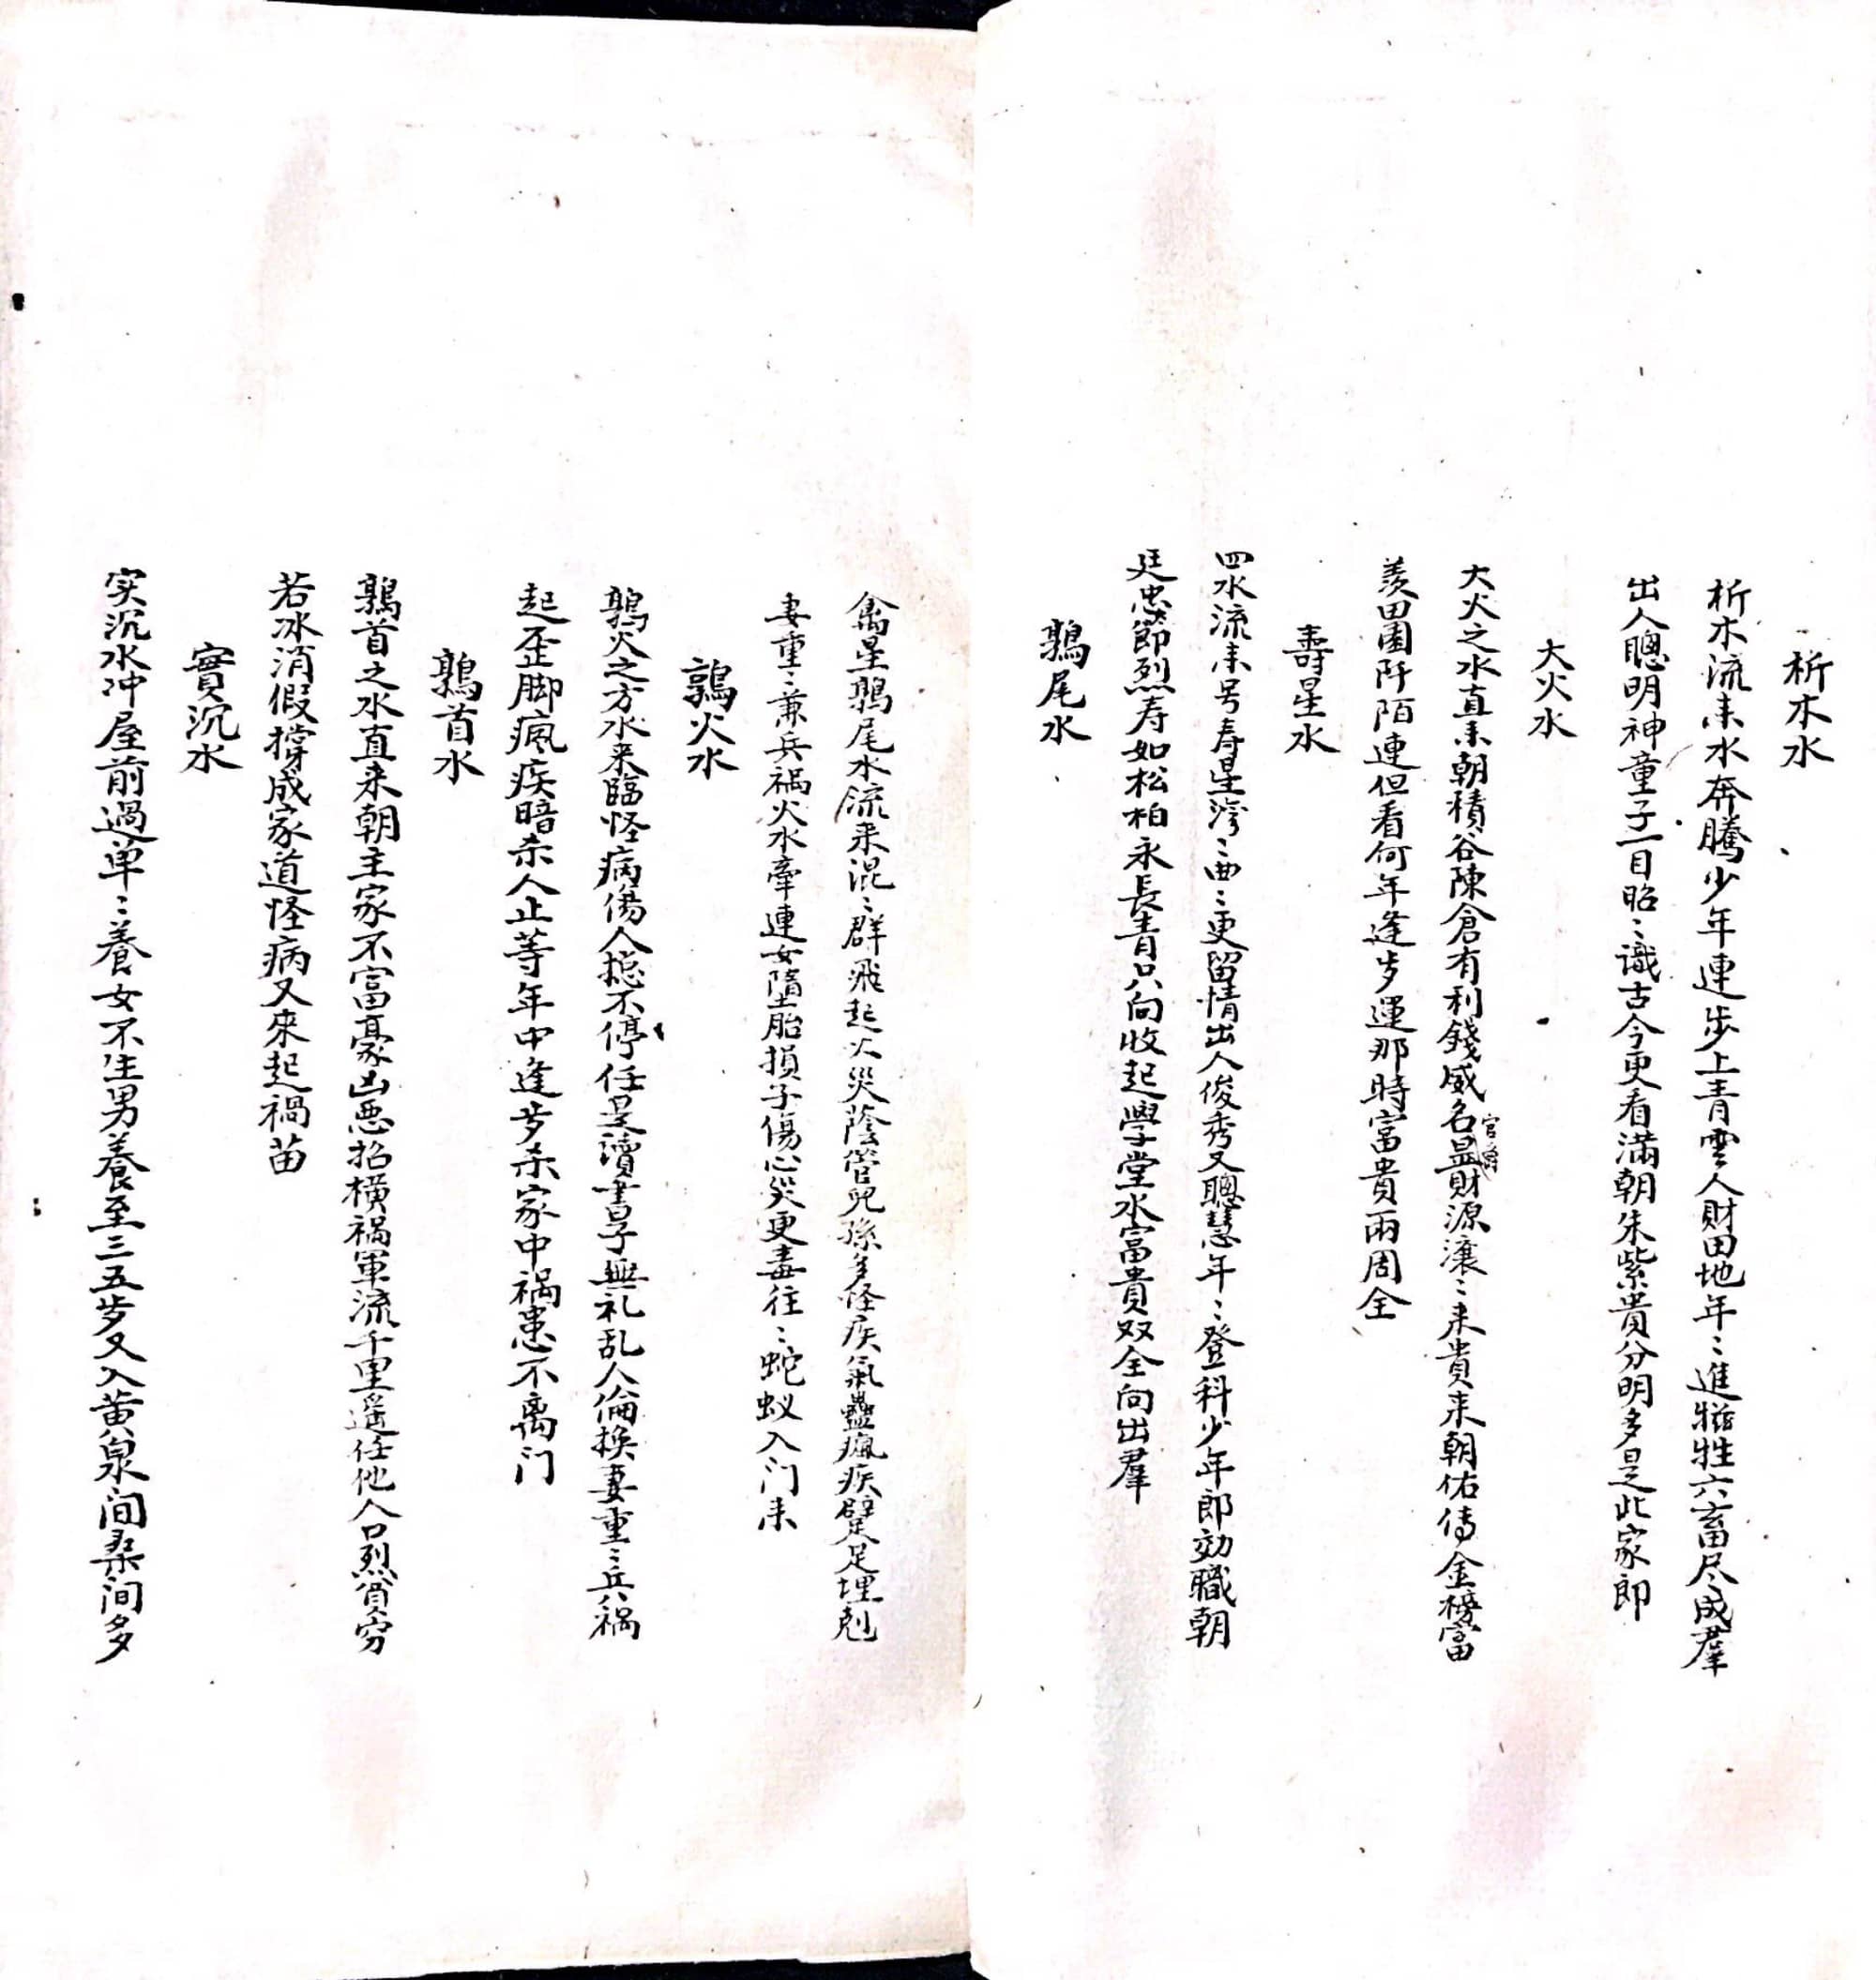 析木水
析木流来水奔騰少年連步上青雲人財田地年〻進牲六畜尽成羣
出人聰明神童子一目昭〻識古今更看滿朝朱紫貴分明多是此家郎
大火水
大火之水直来朝積谷陳倉有利錢威名显官爵財源滾〻来貴来朝佑侍金榜富
羨田園阡陌連但看何年逢歩運那時富貴兩周全
壽星水
四水流来号寿星湾〻曲〻更留情出人俊秀又聰慧年〻登科少年郎効職朝
廷忠節烈寿如松柏永長青只向收起學堂水富貴双全向出羣
鶉尾水
禽星鶉尾水流来混〻群飛起火災蔭管兒孫多怪疾氣蠱瘋疾躄足埋剋
妻重〻兼兵禍火水牽連女墮胎損子傷心災更毒往〻蛇蚁入门来
鶉火水
鶉火之方水来臨怪病傷人摠不停任是讀書子無礼乱人倫換妻重〻兵禍
起歪脚瘋疾暗杀人止等年中逢歩杀家中禍患不离门
鶉首水
鶉首之水直来朝主家不富豪凶悪招橫禍軍流千里遥任他人口烈貧穷
若冰消假撐成家道怪病又來起禍苗
實沉水
实沉水冲屋前過单〻養女不生男養至三五歩又入黄泉间桑间多